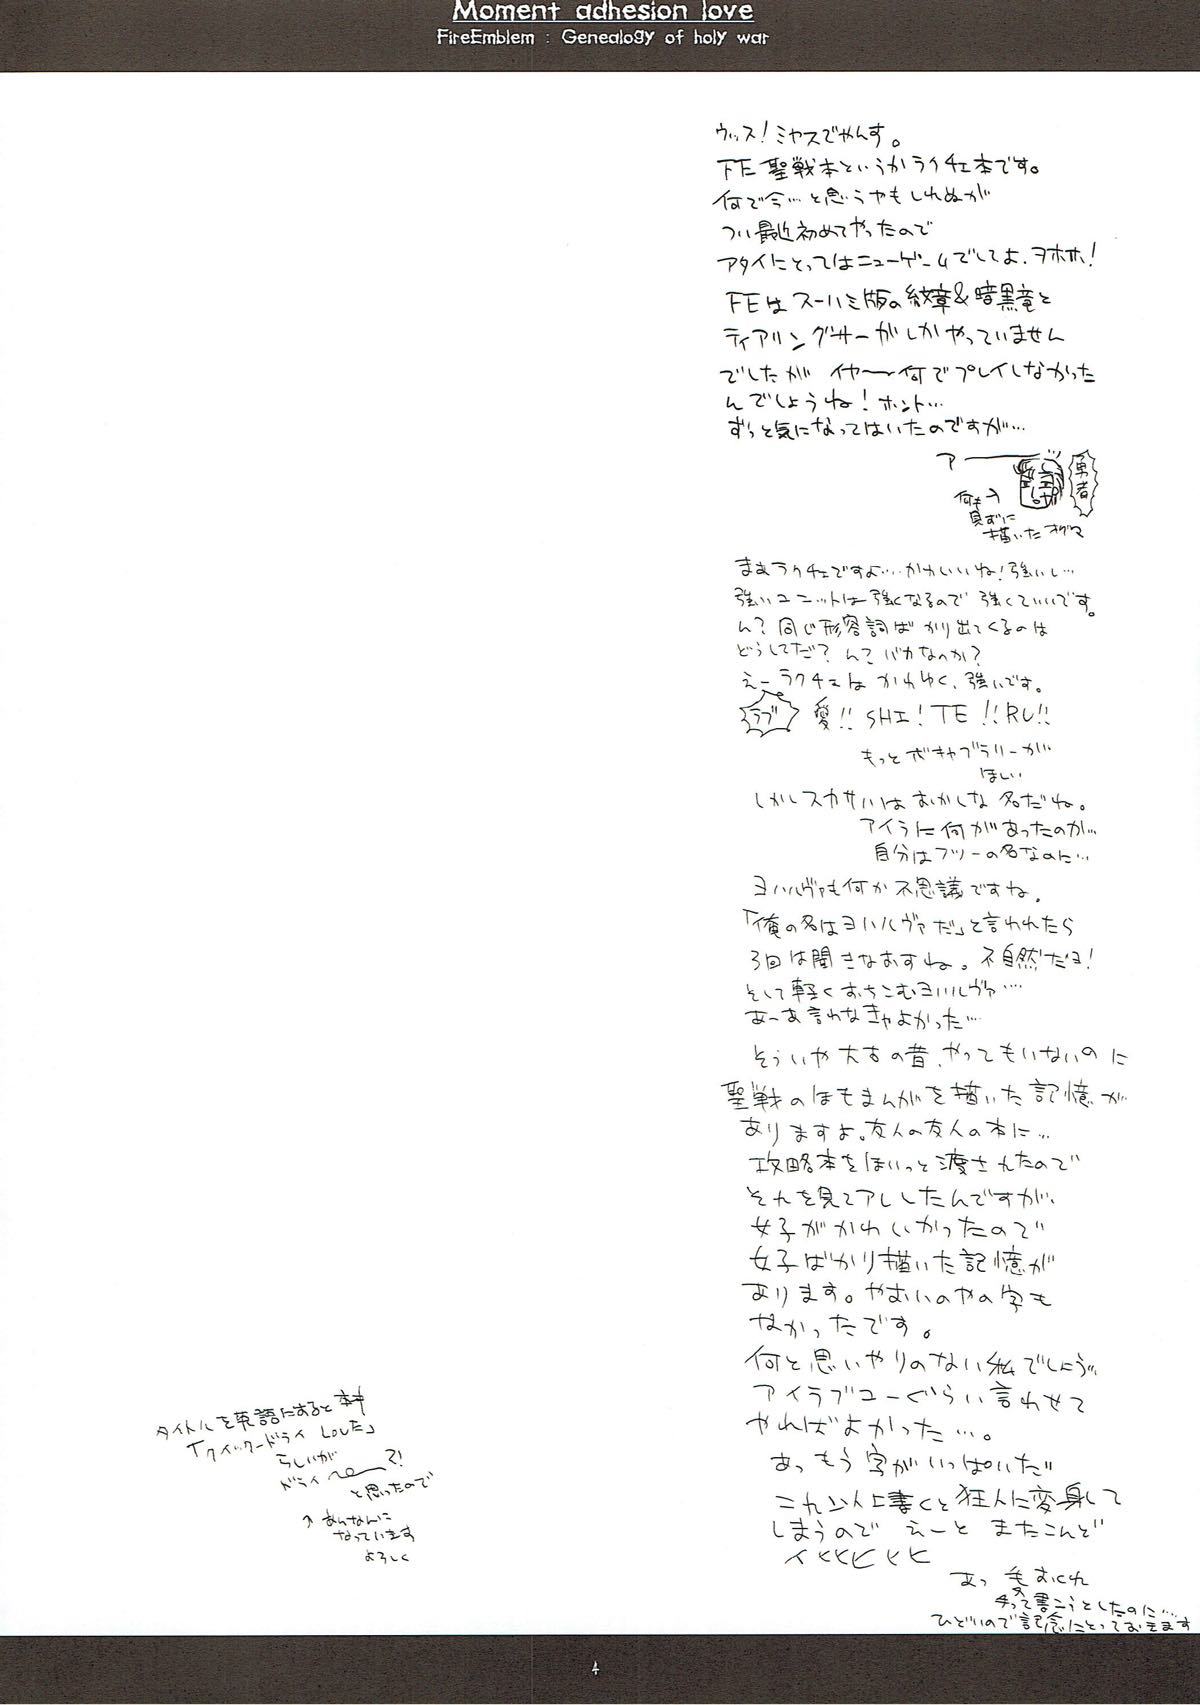 Moment adhesion love
FireEmblem : Genealogy of holy war
ウッス!ミヤスでやんす。
FE聖戦本というかラクチェ本です。
何で今…と思うやもしれぬが
つい最近初めてやったので
アタイにとってはニューゲームでしてよ、ヲホホ!
FEはスーハミ版の紋章&暗黒竜と
ティアリングサーガしかやっていません
でしたが イヤ〜何でプレイしなかった
んでしょうね!ホント…
ずっと気になってはいたのですが…
アー
勇者
何も→
見ずに
描いたオグマ
まあラクチェですよ…かわいいね!強いし…
強いユニットは強くなるので強くていいです。
ん?同じ形容詞ばかり出てくるのは
どうしてだ?んで バカなのか?
えーラクチェはかわゆく、強いです。
ラブ 愛!!SHI!TE!!RU!!
もっとボキャブラリーが
ほしい
しかしスカサハはおかしな名だね。
アイラに何があったのか…
自分はフツーの名なのに…
ヨハルヴァも何か不思議ですね。
「俺の名はヨハルヴァだ」と言われたら
3回は聞きなおすね。不自然だヨ!
そして軽くおちこむヨハルヴァ…
あーあ言わなきゃよかった…
そういや大古の昔、やってもいないのに
聖戦のほもまんがを描いた記憶が
ありますよ。友人の友人の本に…
攻略本をほいっと渡されたので
それを見てアレしたんですが、
女子がかわいかったので
女子ばかり描いた記憶が
あります。やおいのやの字も
なかったです。
何と思いやりのない私でしょう…
アイラブユーぐらい言わせて
やればよかった…。
あっもう字がいっぱいだ
これ以上書くと狂人に変身して
しまうので えーと またこんど
イヒヒヒヒヒ
あっ
って書こうとしたのに…
ひどいので記念にとっておきます
タイトルを英語にすると
「クイックードライ LOVEだ」
らしいが
ドライ〜?!
と思ったので
↑あんなんに
なっています
よろしく
4